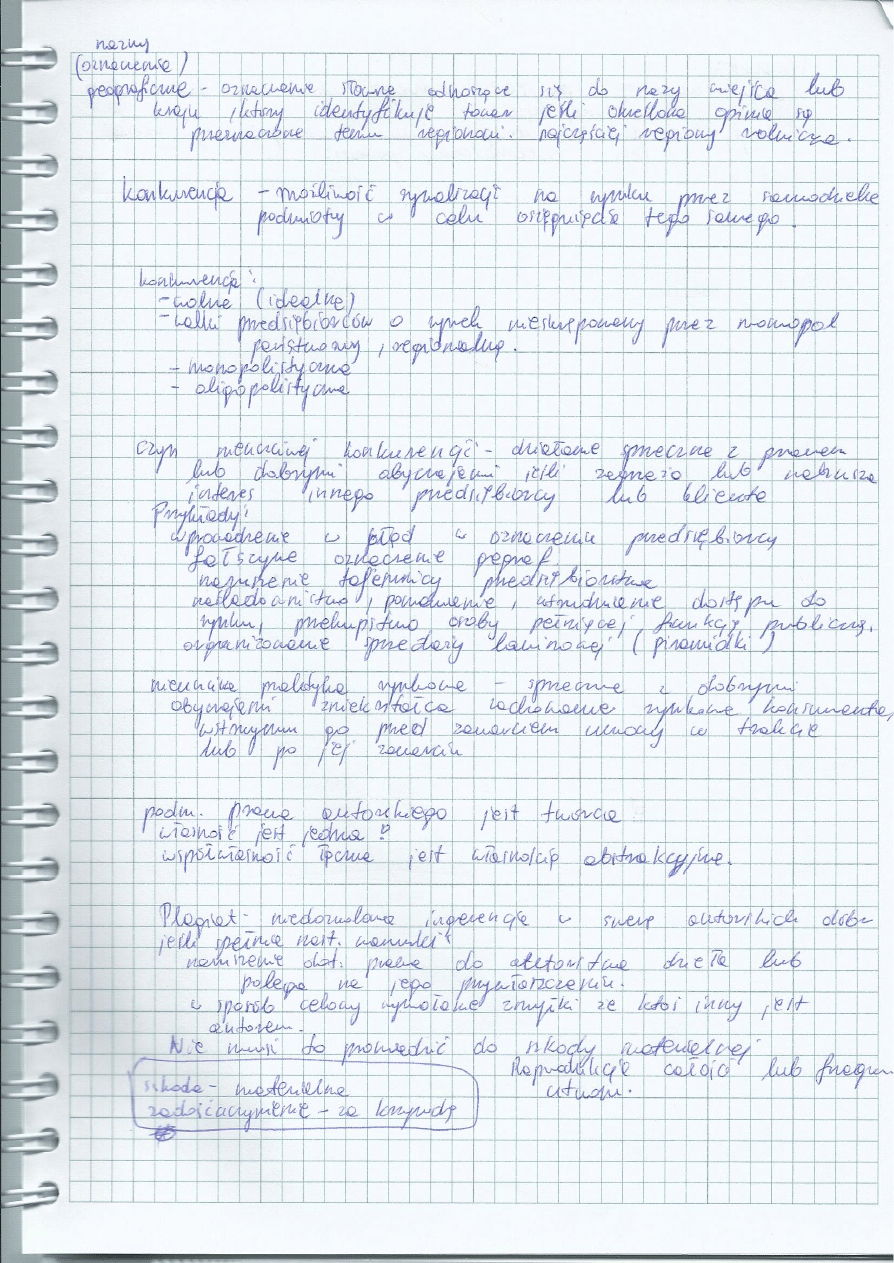 nazwy
(oznaczenia)
geograficzne - oznaczenie słowne odnoszące się do nazy miejsca lub
kraju, który identyfikuje towar jeśli określona opinia są
przeznaczone temu regionowi. najczęściej regiony rolnicze.
konkurencja - możliwość rywalizacji na rynku przez samodzielne
podmioty w celu osiągnięcia tego samego.
konkurencja:
- wolna (idealna)
- walki przedsiębiorców o rynek nieskrępowany przez monopol
państwowy, regionalny.
- monopolistyczna
- oligopolistyczna
czyn nieuczciwej konkurencji - działanie sprzeczne z prawem
lub dobrymi obyczajami jeśli zagraża lub narusza
interes innego przedsiębiorcy lub klienta
Przykłady:
wprowadzenie w błąd w oznaczeniu przedsiębiorcy
fałszywe oznaczenie geograf.
naruszenie tajemnicy przedsiębiorstwa
naśladownictwo, pomawianie, utrudnianie dostępu do
rynku, przekupstwo osoby pełniącej funkcję publiczną,
organizowanie sprzedaży lawinowej (piramidki)
nieuczciwa praktyka rynkowa - sprzeczna z dobrymi
obyczajami zniekształca zachowanie rynkowe konsumenta,
przed zawarciem umowy w trakcie
lub po jej zawarciu
podm. prawa autorskiego jest twórca
własność jest jedna?
współwłasność łączna jest własnością abstrakcyjną.
Plagiat - niedozwolona ingerencja w sferę autorskich dóbr
jeśli spełnia nast. warunki:
naruszenie dot. prawa do autorstwa dzieła lub
polega na jego przywłaszczeniu.
w sposób celowy wywołanie zmyłki że ktoś inny jest
autorem.
Nie musi to prowadzić do szkody materialnej
Reprodukcja całości lub fragm
utworu.
szkoda - materialna
zadośćuczynienie - za krzywdę